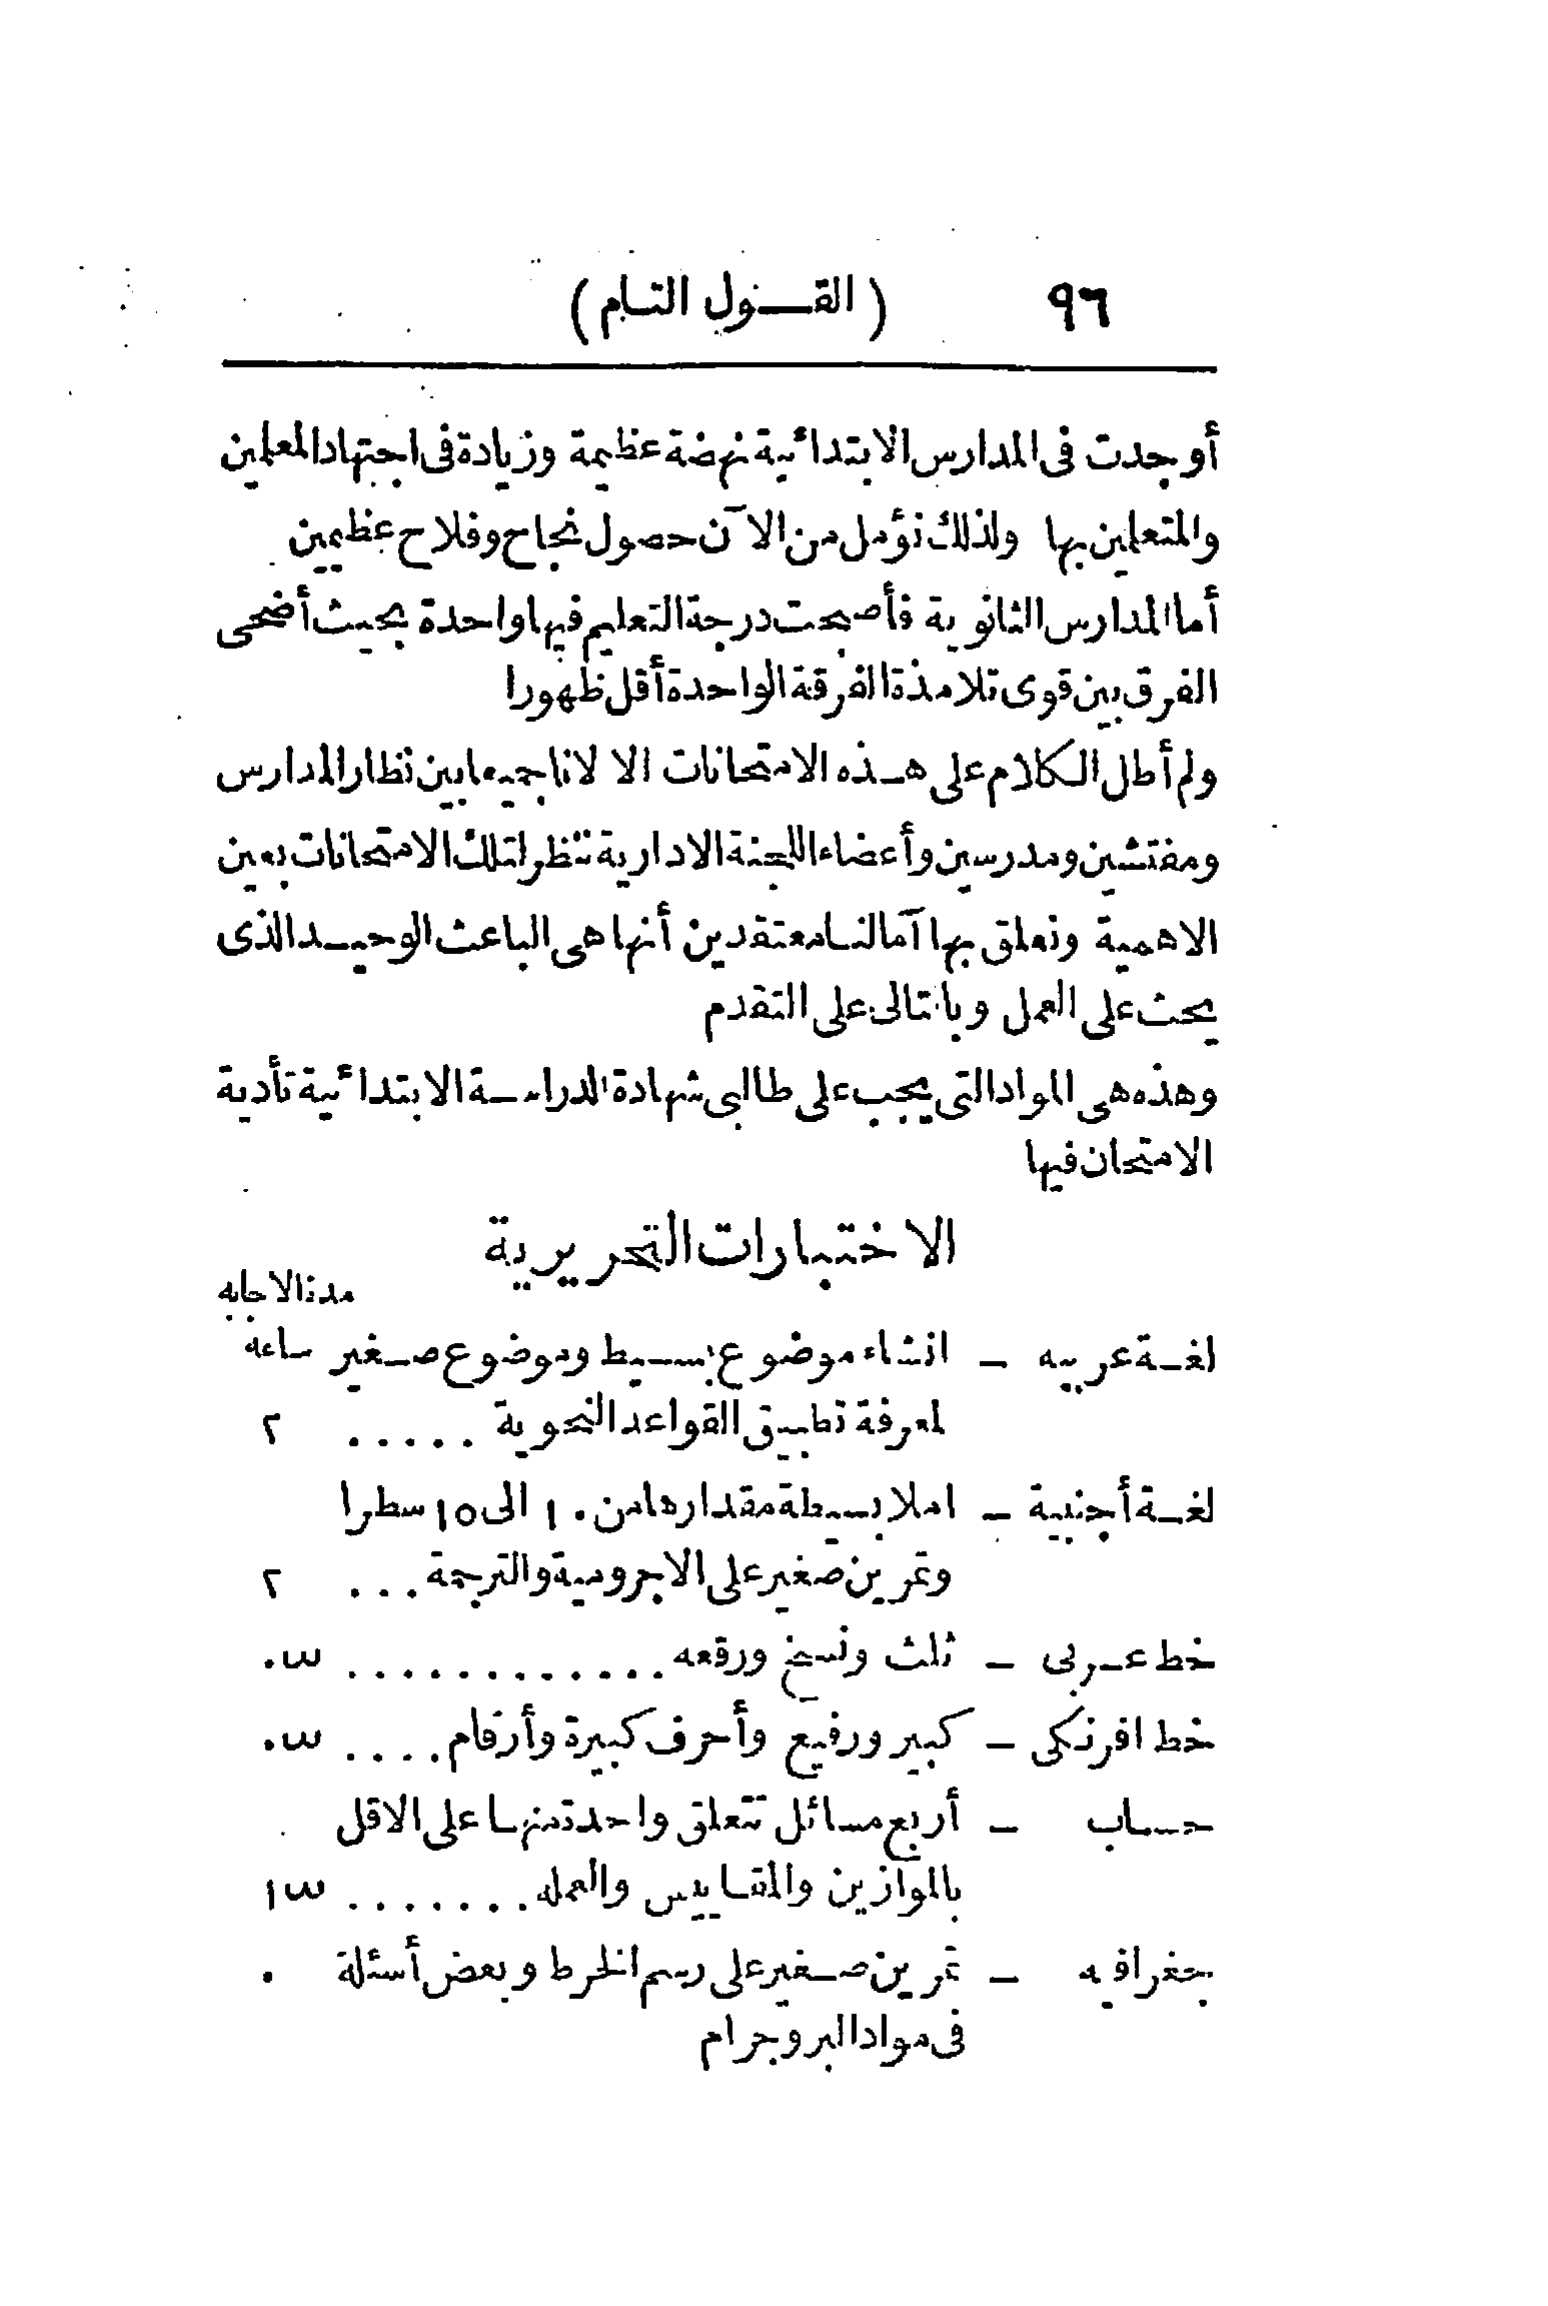 ٩٦ (القول التام)
أوجدت فى المدارس الابتدائية نهضة عظيمة وزيادة فى اجتهاد المعلمين
والمتعلمين بها ولذلك نؤمل من الآن حصول نجاح وفلاح عظيمين
أما المدارس الثانوية فأصبحت درجة التعليم فيها واحدة بحيث أضحى
الفرق بين قوى تلامذة الفرقة الواحدة أقل ظهورا
ولم أطل الكلام على هذه الامتحانات الا لانا جميعا بين نظار المدارس
ومفتشين ومدرسين وأعضاء اللجنة الادارية ننظر لتلك الامتحانات بعين
الاهمية ونعلق بها آمالنا معتقدين أنها هى الباعث الوحيد الذى
يحث على العمل وبالتالى على التقدم
وهذه هى المواد التى يجب على طالبى شهادة الدراسة الابتدائية تأدية
الامتحان فيها
الاختبارات التحريرية
مدة الاجابه
لغة عربيه – انشاء موضوع بسيط وموضوع صغير ساعه
لمعرفة تطبيق القواعد النحوية ..... ٢
لغة أجنبية – املا بسيطة مقدارها من ١٠ الى ١٥ سطرا
وتمرين صغير على الاجرومية والترجمة ... ٢
خط عربى – ثلث ونسخ ورقعه ............ ٣٠
خط افرنكى – كبير ورفيع وأحرف كبيرة وأرقام .... ٣٠
حساب – أربع مسائل تتعلق واحدة منها على الاقل
بالموازين والمقاييس والعمله ....... ١٣
جغرافيه – تمرين صغير على رسم الخرط وبعض أسئلة ٠
فى مواد البروجرام